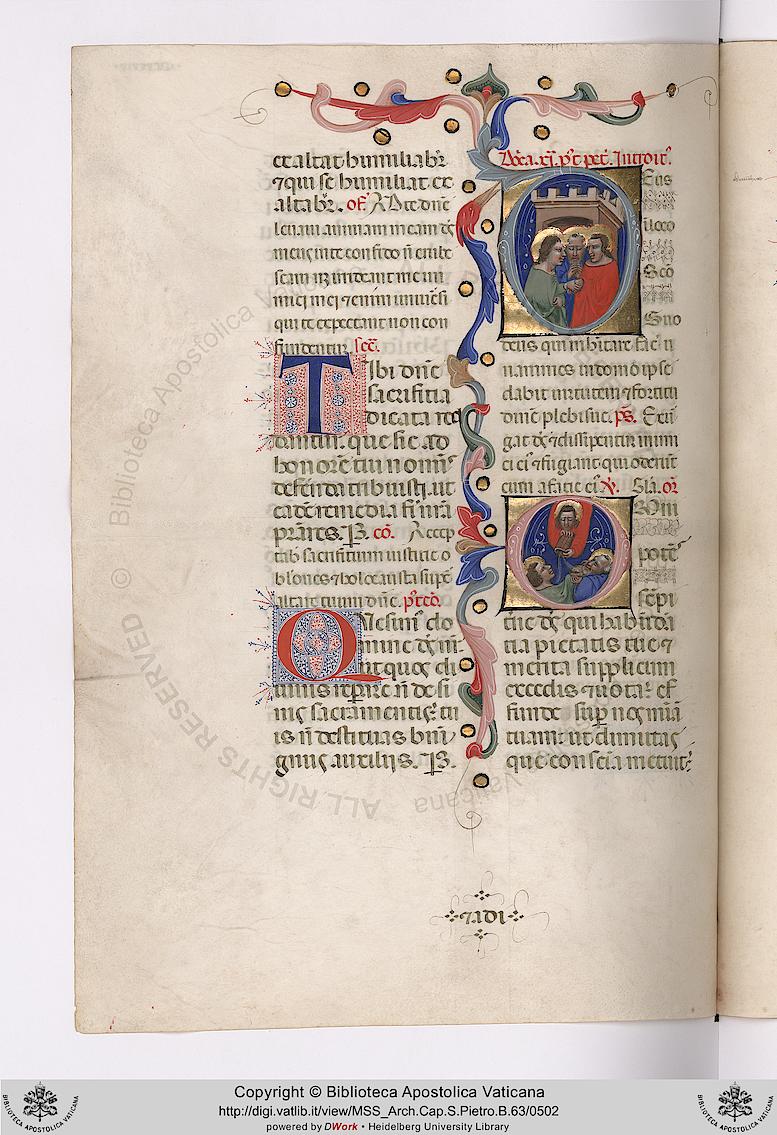 exaltat humiliabr̄
⁊ qui se humiliat ex
altabr̄. of̄. A Dte dn̄e
leuaui animam meam dš
meus in te confido n̄ erube
scam neq; irrideant me inimi
mici mei ⁊ enim uniūsi
qui te expectant non con
fundentur. sec̄.
Tibi dn̄e
sacrificia
dicata red
dantur. que sic ad
honorē tui nominis
deferēda tribuisti. ut
eadē remedia fieri nr̄a
prestes. P. cō. Accep
tab̄ sacrificium iusticie o
blatiōes ⁊ holocausta supē
altare tuum dn̄e. p̄tcō.
Qvesum' do
mine dš nr̄
ut quos di
uinis repare n̄ desi
nis sacramentis: tu
is n̄ destituas benī
gnus auxiliis. P.
Dn̄ica. xi. p't pet̄. Introit'.
Deus
in loco
Sc̄o
Suo
deus qui inhītare fac̄ u
nanimes in domo ipse
dabit uirtutem ⁊ fortitu
dinē plebi sue. p̄s. Exur
gat dš ⁊ dissipentur inimi
ci ei' ⁊ fugiant qui oderūt
eum a facie ei' ℣. Gl̄a. or̄
Omni
potēs
sēpi
t̄ne dš qui habundā
tia pietatis tue ⁊
merita supplicum
excedis ⁊ uota: ef
funde sup̄ nos mīam
tuam: ut dimittas
que conscīa metuit:
⁊ adi
Copyright © Biblioteca Apostolica Vaticana
http://digi.vatlib.it/view/MSS_Arch.Cap.S.Pietro.B.63/0502
powered by DWork • Heidelberg University Library
Biblioteca Apostolica Vaticana
© ALL RIGHTS RESERVED